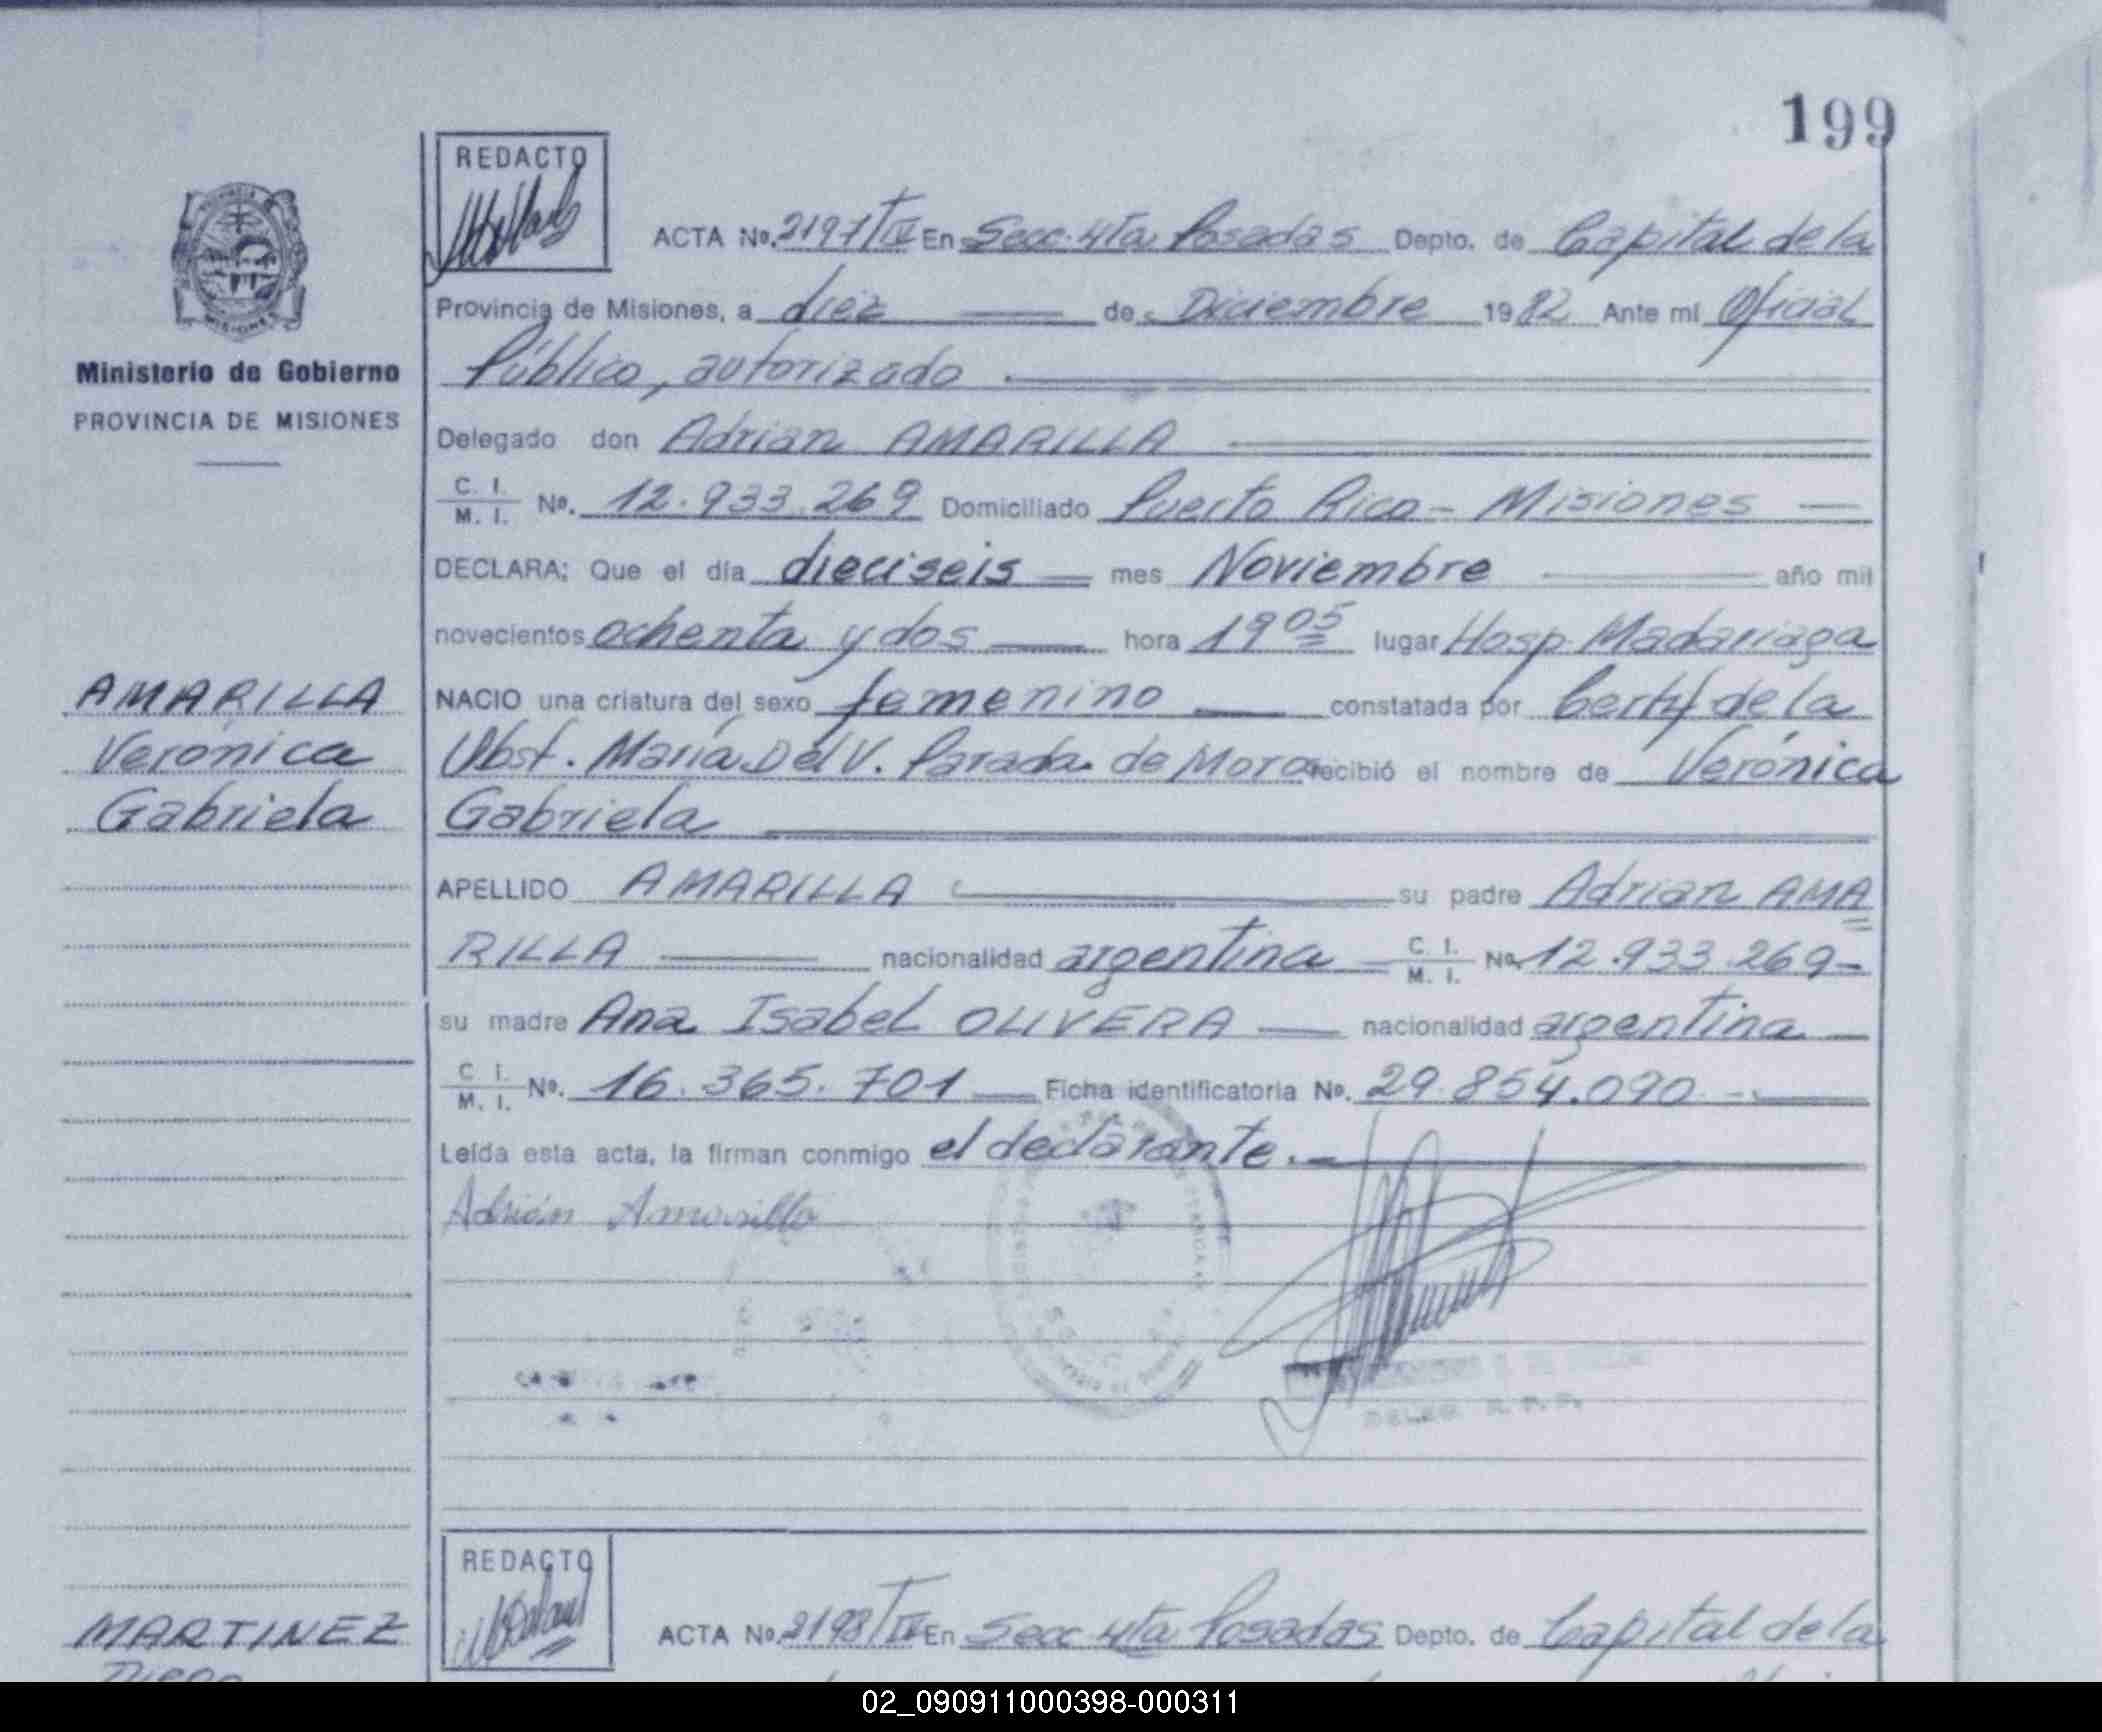 199
REDACTO
ACTA No. 2197/T IV En Secc. 4ta Posadas Depto. de Capital de la
Provincia de Misiones, a diez de Diciembre 1982 Ante mi Oficial
Ministerio de Gobierno
Público, autorizado
PROVINCIA DE MISIONES
Delegado don Adrian AMARILLA
C. I. / M. I. No. 12.933.269 Domiciliado Puerto Rico - Misiones
DECLARA: Que el día dieciseis mes Noviembre año mil
novecientos ochenta y dos hora 19 05 lugar Hosp. Madariaga
AMARILLA
NACIO una criatura del sexo femenino constatada por Certif de la
Verónica
Obst. María Del V. Parada de Mora recibió el nombre de Verónica
Gabriela
Gabriela
APELLIDO AMARILLA su padre Adrian AMA
RILLA nacionalidad argentina C. I. / M. I. No. 12.933.269-
su madre Ana Isabel OLIVERA nacionalidad argentina
C. I. / M. I. No. 16.365.701 Ficha identificatoria No. 29.854.090
Leída esta acta, la firman conmigo el declarante.
Adrián Amarilla
DELEG. R. P. P.
REDACTO
MARTINEZ
ACTA No. 2198/T IV En Secc 4ta Posadas Depto. de Capital de la
02_090911000398-000311